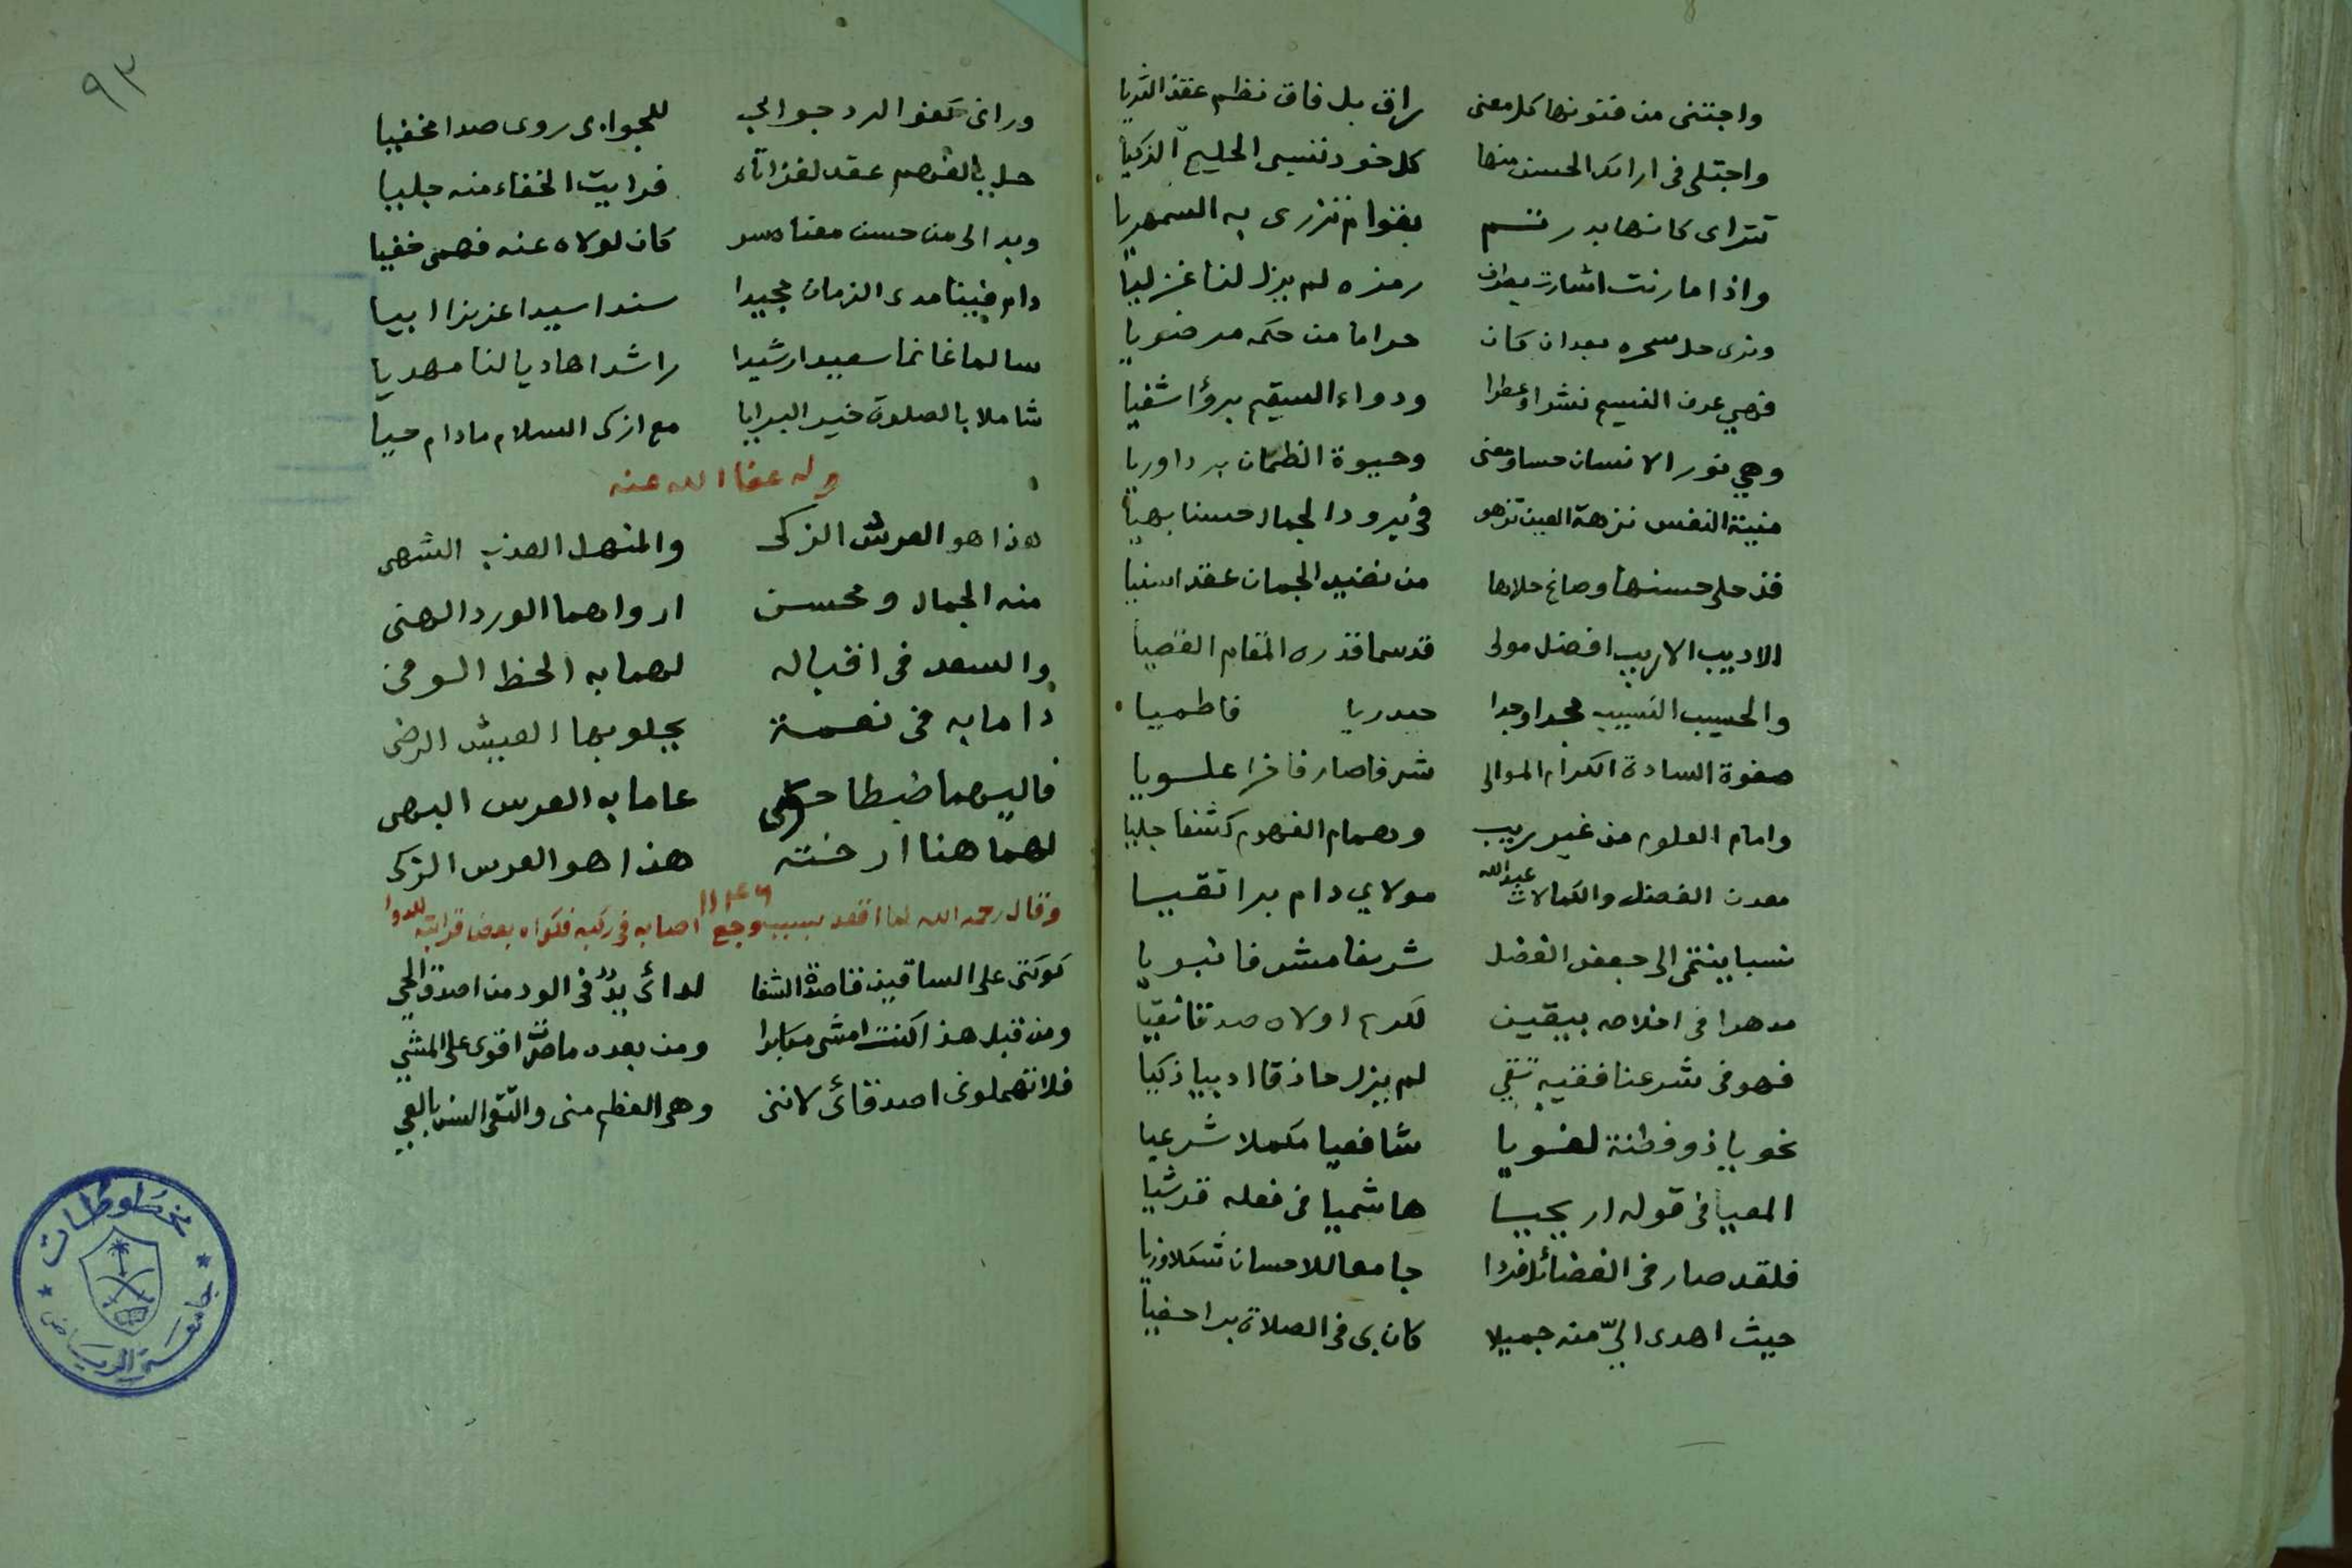 واجتنى من فنونها كل معنى راق بل فاق نظم عقد الثريا
واجتلى في ارائك الحسن منها كل خود تنسي الخليع الذكيا
تتراى كانها بدر تم بقوام تزرى به السمهريا
واذا ما رنت اشارت بطرف رمزه لم يزل لنا غزليا
وترى حل سحره بعد ان كان حراما من حكمه مرضويا
فهي عرف النسيم نشرا وعطرا ودواء السقيم برؤا شفيا
وهي نور الانسان حسا ومعنى وحيوة الظمان بردا وريا
منية النفس نزهة العين تزهو في برود الجمال حسنا بهيا
قد حلى حسنها وصاغ حلاها من نضيد الجمان عقدا سنيا
الاديب الاريب افضل مولى قد سما قدره المقام القصيا
والحسيب النسيب مجدا وجدا حيدريا فاطميا
صفوة السادة الكرام الموالي شرفا صار فاخرا علويا
وامام العلوم من غير ريب وهمام الفهوم كشفا جليا
معدن الفضل والكمالات عبدالله مولاي دام برا تقيا
نسبا ينتمى الى جعفر الفضل شريفا مشرفا نبويا
مدهرا في اخلاصه بيقين لكريم اولاه صدقا نقيا
فهو في شرعنا فقيه تقي لم يزل حاذقا اديبا ذكيا
نحويا ذو فطنة لغويا شافعيا مكملا شرعيا
المعيا في قوله اريحيا هاشميا في فعله قرشيا
فلقد صار في الفضائل فردا جامعا للاحسان شكلا وزيا
حيث اهدى اليّ منه جميلا كان بي في الصلاة برا حفيا
٩٣
وراني كفوا لرد جوابي للجوادى روى صدا مخفيا
حل بالفهم عقد لغز اتاه فرايت الخفاء منه جليا
وبدا لي من حسن معناه سر كان لولاه عنه فهمي خفيا
دام فينا مدى الزمان مجيدا سندا سيدا عزيزا ابيا
سالما غانما سعيدا رشيدا راشدا هاديا لنا مهديا
شاملا بالصلوة خير البرايا مع ازكى السلام ما دام حيا
وله عفا الله عنه
هذا هو العرش الزكى والمنهل العذب الشهى
منه الجمال ومحسن ارواهما الورد الهنى
والسعد في اقباله لهما به الحظ الوفى
داما به في نعمة يجلو بها العيش الرضى
فاليهما ضبطا حكى عاما به العرس البهى
لهما هنا ارخته هذا هو العرس الزكى
وقال رحمه الله لما اقعد بسبب وجع اصابه في ركبه فكواه بعض قرابته للدوا
كوتني على الساقين قاصدة الشفا لدائى يدٌ في الود من اصدق الحي
ومن قبل هذا كنت امشى مكابرا ومن بعده ما صرت اقوى على المشي
فلا تهملوني اصدقائى لانني وهى العظم منى والتقى الشرب بالعي
مخطوطات
جامعة الرياض